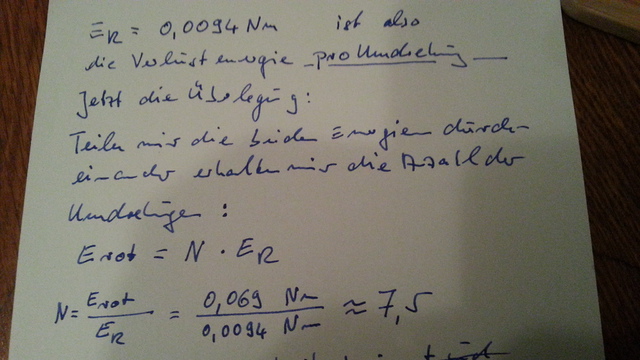 E_R = 0,0094 Nm ist also
die Verlustenergie pro Umdrehung
Jetzt die Überlegung:
Teilen wir die beiden Energien durch-
einander erhalten wir die Anzahl der
Umdrehungen :
E_rot = N · E_R
N = E_rot / E_R = 0,069 Nm / 0,0094 Nm ≈ 7,5